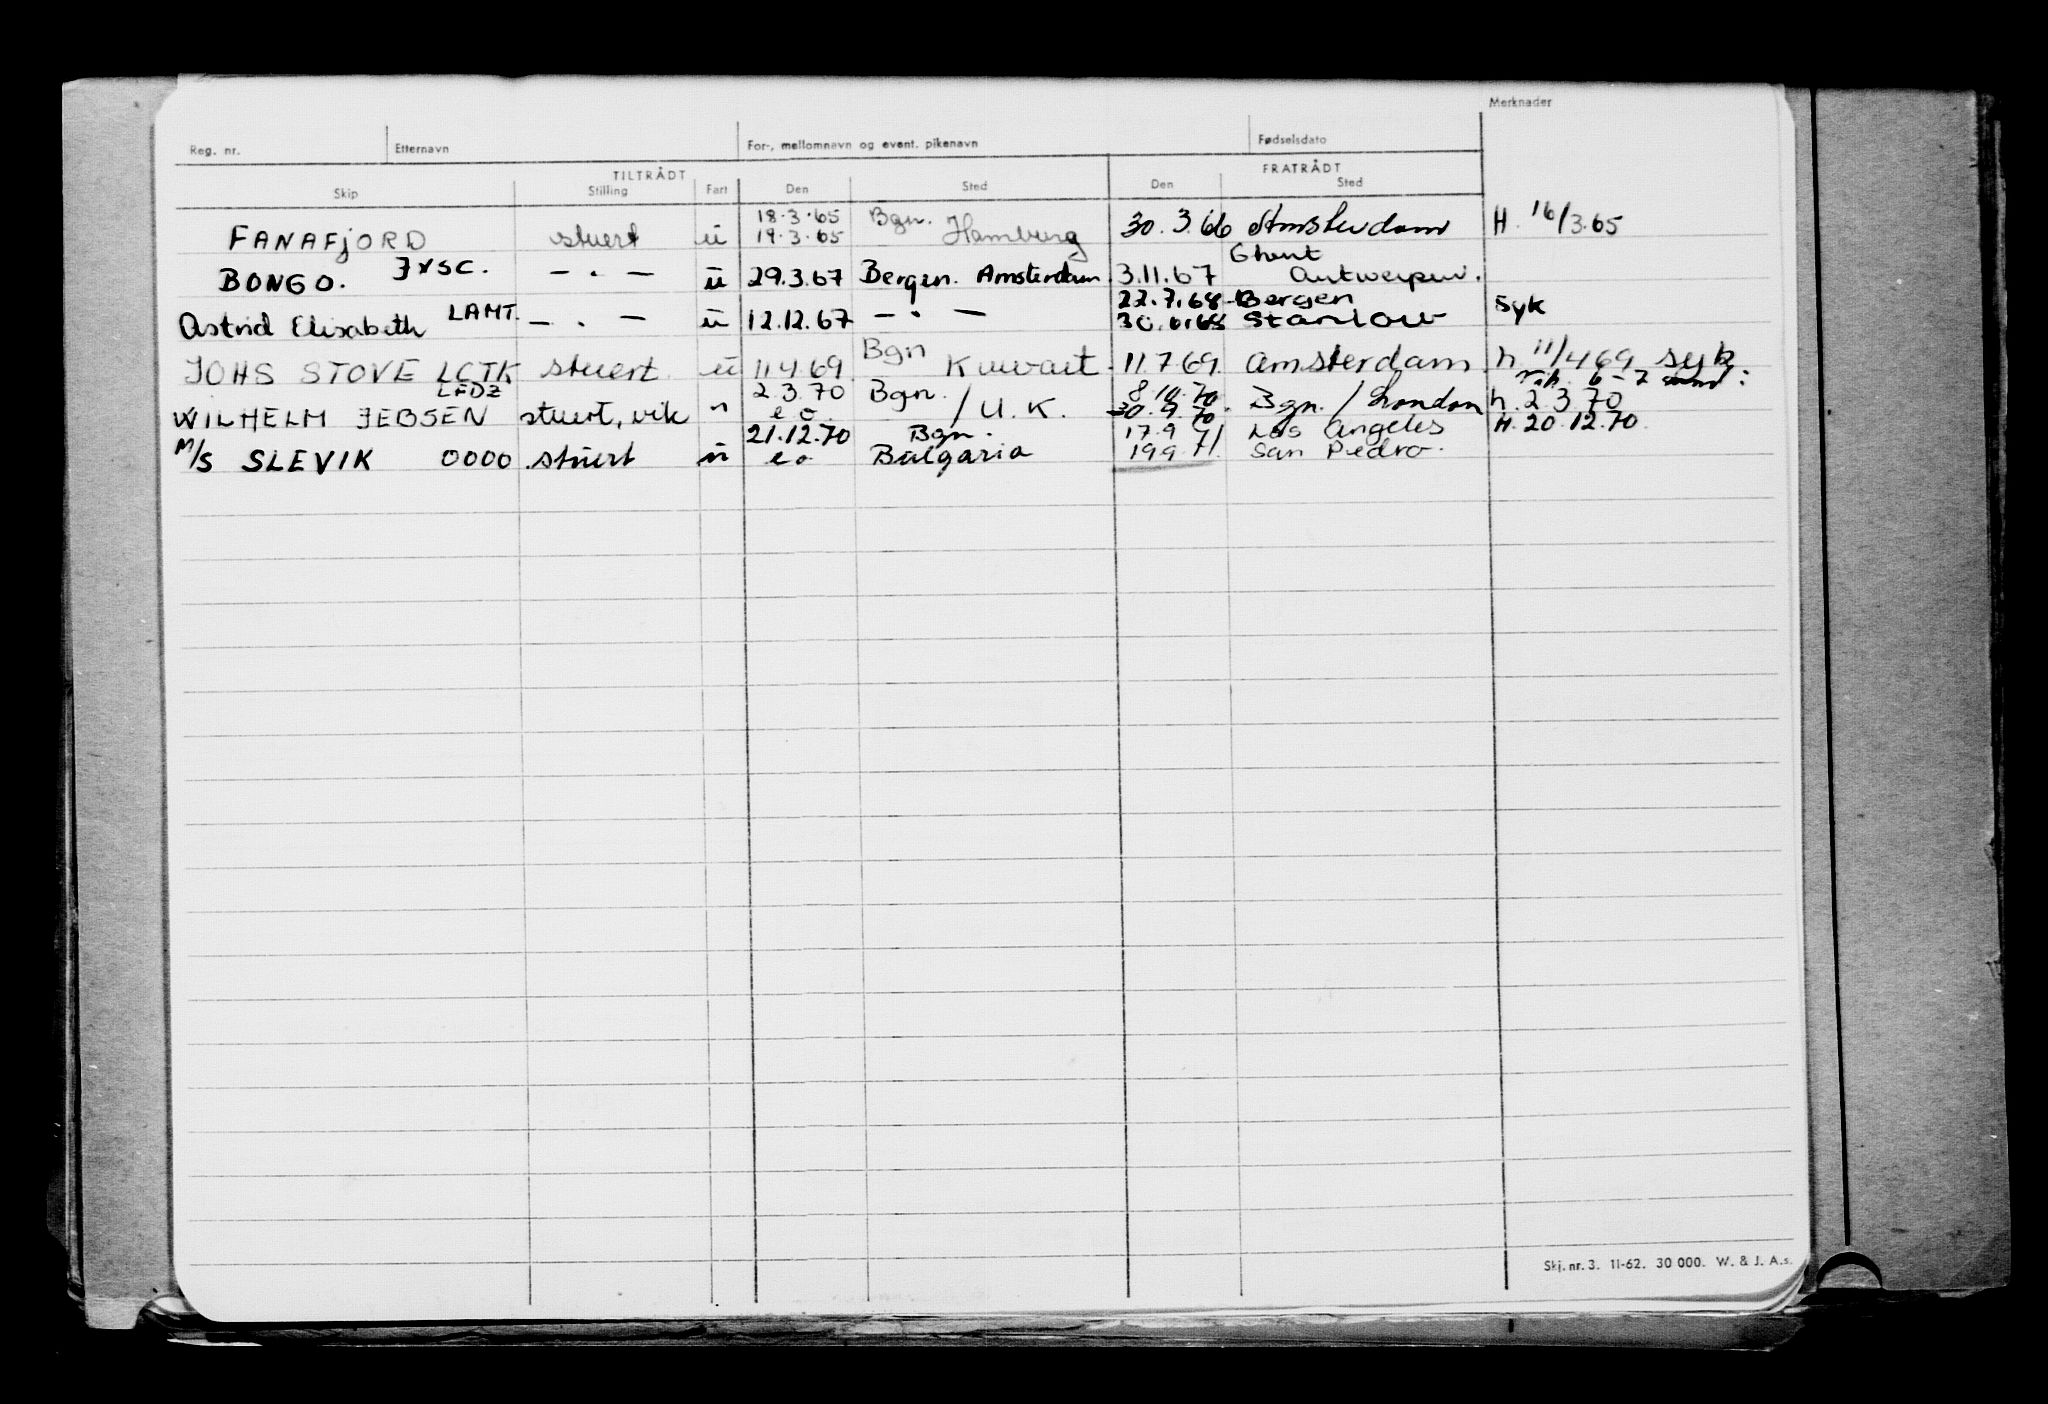 Merknader
Reg. nr. Etternavn For-, mellomnavn og event. pikenavn Fødselsdato
TILTRÅDT FRATRÅDT
Skip Stilling Fart Den Sted Den Sted
18.3.65 Bgn.
FANAFJORD stuert ü 19.3.65 Hamburg 30.3.66 Amsterdam H. 16/3.65
Ghent
BONGO. JXSC. — . — ü 29.3.67 Bergen. Amsterdam 3.11.67 Antwerpen.
22.7.68 Bergen
Astrid Elisabeth LAMT. — . — ü 12.12.67 — . — 30.6.68 Stanlow Syk
Bgn
JOHS STOVE LCTK stuert ü 11.4.69 Kuwait 11.7.69 Amsterdam. h. 11/4 69 syk
vik. 6-7 mnd:
LEDZ 2.3.70 Bgn. 8.10.70
WILHELM JEBSEN stuert, vik " e.o. / U.K. 30.9.70 Bgn. / London h. 2.3.70
21.12.70 Bgn. 17.9.71 Los Angeles H. 20.12.70.
M/S SLEVIK 0000 stuert ü e.o. Bulgaria 19.9.71. San Pedro.
Skj. nr. 3. 11-62. 30 000. W. & J. A.s.